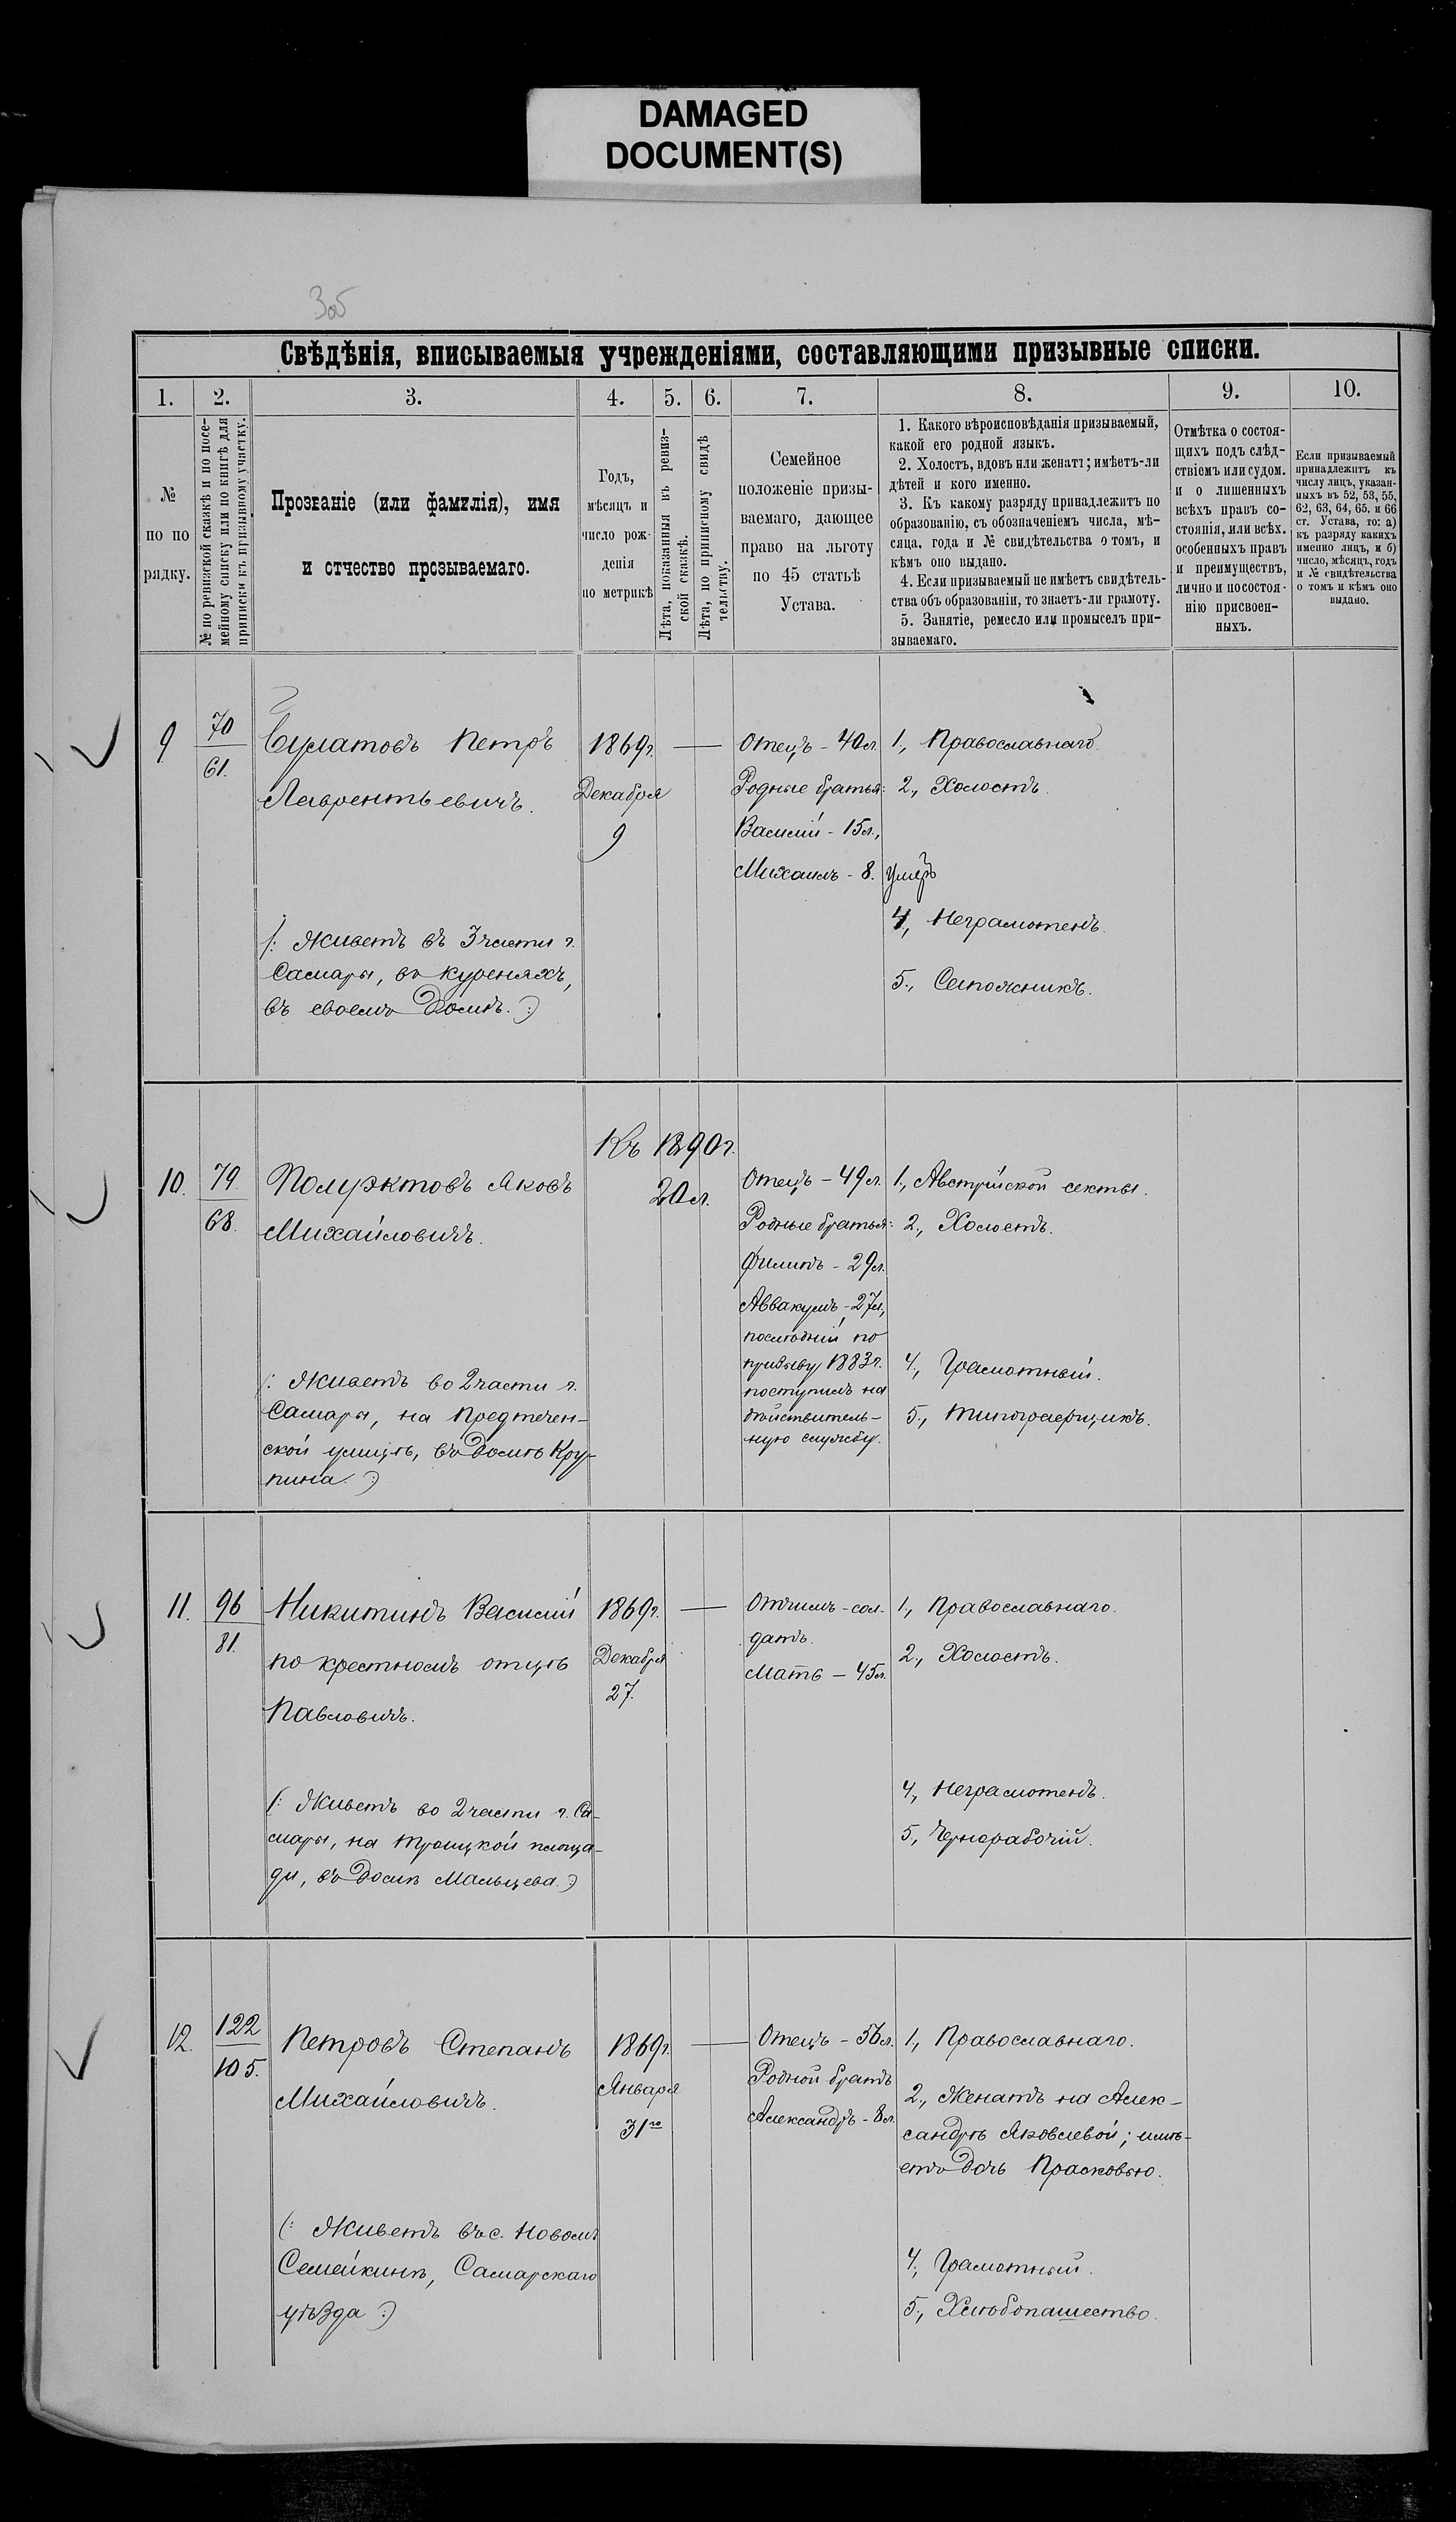 DAMAGED
DOCUMENT(S)
305
Свѣдѣнія, вписываемыя учрежденіями, составляющими призывные списки.
1.
2.
3.
4.
5.
6.
7.
8.
9.
10.
№
по по
рядку.
№ по ревизской сказкѣ и по посе-
мейному списку или по книгѣ для
приписки къ призывному участку.
Прозваніе (или фамилія), имя
и отчество призываемаго.
Годъ,
мѣсяцъ и
число рож-
денія
по метрикѣ
Лѣта, показанныя въ ревиз-
ской сказкѣ.
Лѣта, по приписному свидѣ
тельству.
Семейное
положеніе призы-
ваемаго, дающее
право на льготу
по 45 статьѣ
Устава.
1. Какого вѣроисповѣданія призываемый,
какой его родной языкъ.
2. Холостъ, вдовъ или женатъ; имѣетъ-ли
дѣтей и кого именно.
3. Къ какому разряду принадлежитъ по
образованію, съ обозначеніемъ числа, мѣ-
сяца, года и № свидѣтельства о томъ, и
кѣмъ оно выдано.
4. Если призываемый не имѣетъ свидѣтель-
ства объ образованіи, то знаетъ-ли грамоту.
5. Занятіе, ремесло или промыселъ при-
зываемаго.
Отмѣтка о состоя-
щихъ подъ слѣд-
ствіемъ или судом.
и о лишенныхъ
всѣхъ правъ со-
стоянія, или всѣх.
особенныхъ правъ
и преимуществъ,
лично и по состоя-
нію присвоен-
ныхъ.
Если призываемый
принадлежитъ къ
числу лицъ, указан-
ныхъ въ 52, 53, 55,
62, 63, 64, 65. и 66
ст. Устава, то: а)
къ разряду какихъ
именно лицъ, и б)
число, мѣсяцъ, годъ
и № свидѣтельства
о томъ и кѣмъ оно
выдано.
9
70
61.
Булатовъ Петръ
Лаврентьевичъ.
(: Живетъ въ 3 части г.
Самары, въ куреняхъ,
въ своемъ домѣ. :)
1869г.
Декабря
9
—
Отецъ - 40л.
Родные братья:
Василій - 15л.,
Михаилъ - 8. умеръ
1., Православнаго.
2., Холостъ.
4, Неграмотенъ.
5., Сапожникъ.
10.
79.
68.
Полуэктовъ Яковъ
Михайловичъ.
(: Живетъ во 2 части г.
Самары, на Предтечен-
ской улицѣ, въ домѣ Кру-
пина. :)
Къ 1890г.
20л.
Отецъ - 49л.
Родные братья:
Филипъ - 29л.
Аввакумъ - 27л,
послѣдній по
призыву 1883г.
поступилъ на
дѣйствитель-
ную службу.
1., Австрійской секты.
2., Холостъ.
4., Грамотный.
5., Типографщикъ.
11.
96
81.
Никитинъ Василій
по крестномъ отцѣ
Павловичъ.
(: Живетъ во 2 части г. Са-
мары, на Троицкой площа-
ди, въ домѣ Мальцева. :)
1869г.
Декабря
27.
—
Отчимъ - сол-
датъ.
Мать - 45л.
1., Православнаго.
2., Холостъ.
4, Неграмотенъ.
5, Чернорабочій.
12.
122
105.
Петровъ Степанъ
Михайловичъ.
(: Живетъ въ с. Новомъ
Семейкинѣ, Самарскаго
уѣзда :)
1869г.
Января
31го
—
Отецъ - 56л.
Родной братъ
Александръ - 8л.
1., Православнаго.
2., Женатъ на Алек-
сандрѣ Яковлевой; имѣ-
етъ дочь Прасковью.
4., Грамотный.
5., Хлѣбопашество.